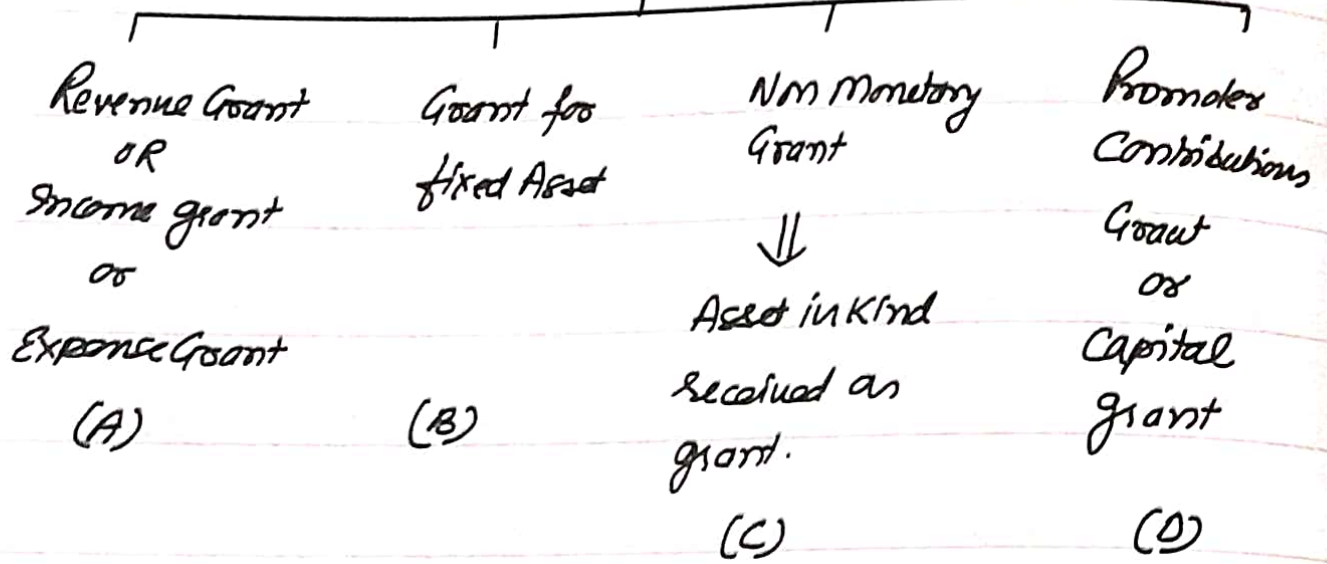 Revenue Grant
OR
Income grant
or
Expense Grant
(A)
Grant for
fixed Asset
(B)
Non Monetary
Grant
⇓
Asset in Kind
received as
grant.
(C)
Promoter
Contributions
Grant
or
Capital
grant
(D)